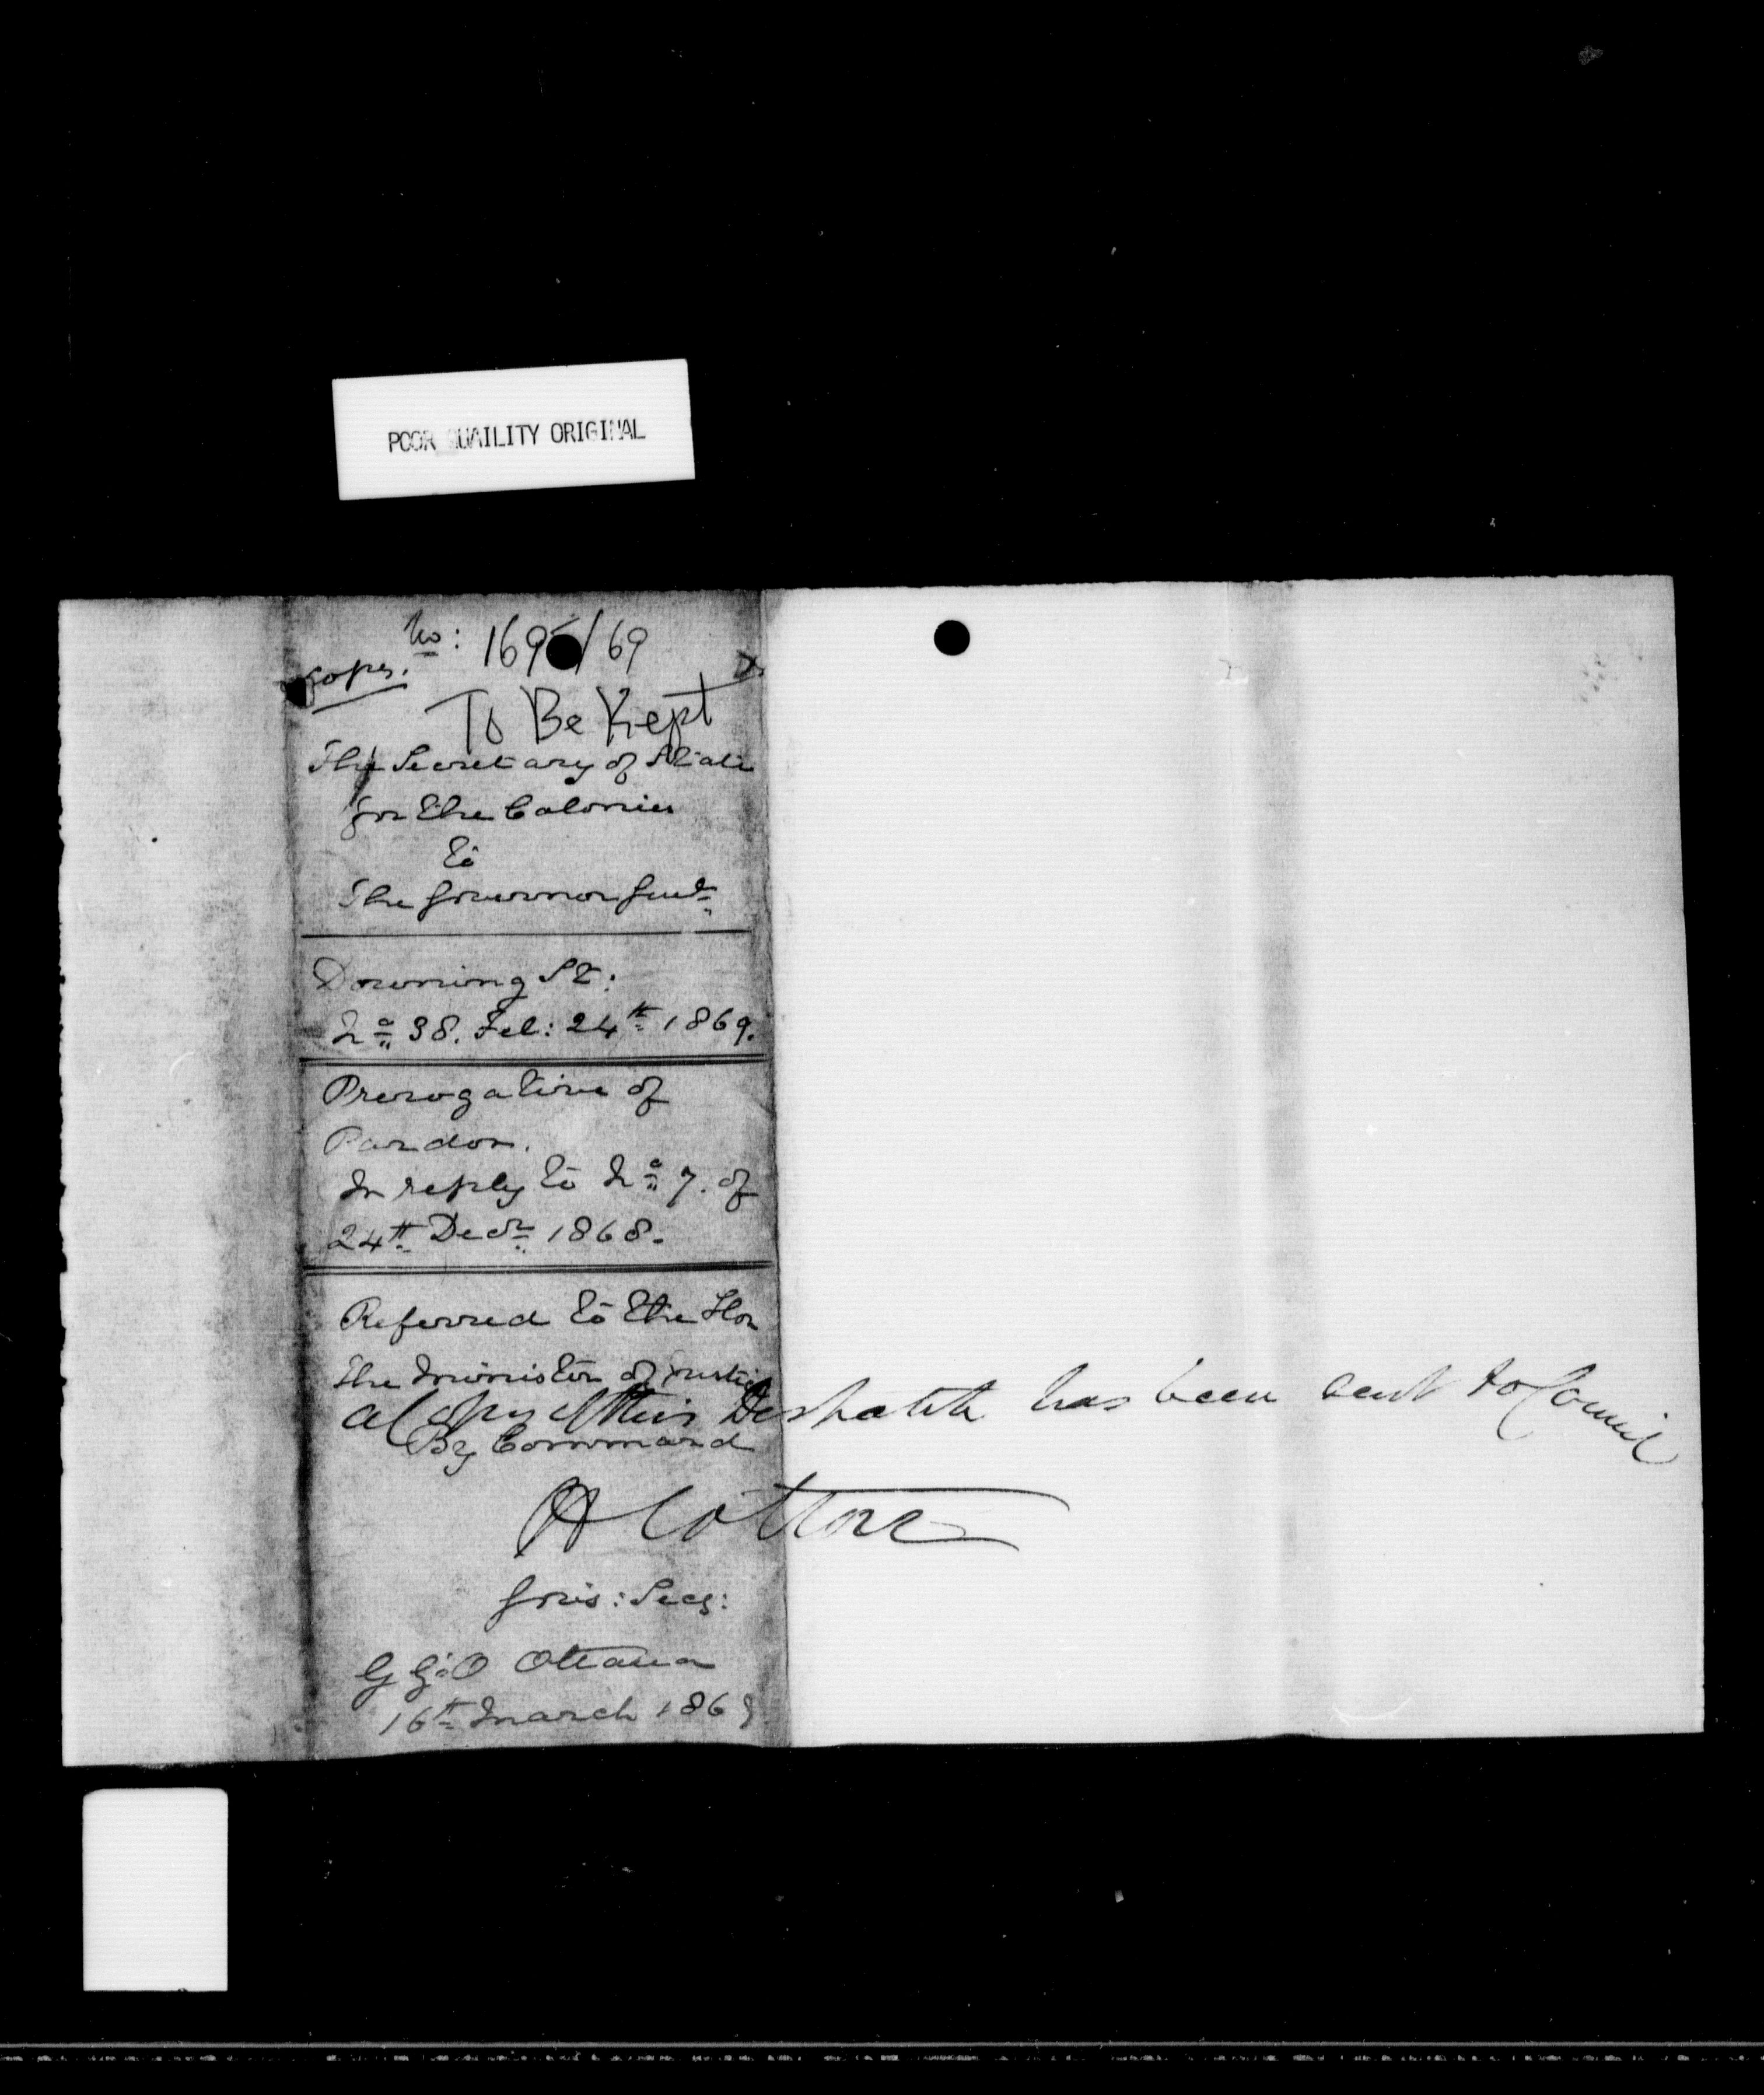 POOR QUAILITY ORIGINAL
No: 169 /69
Copy.
To Be Kept
The Secretary of State
for the Colonies
to
The Governor Genl.
Downing St:
No. 38. Feb: 24th 1869.
Prerogative of
Pardon.
In reply to No. 7. of
24th Decr. 1868.
Referred to the Hon
the Minister of Justice
A Copy of this Despatch has been sent to Council
By Command
H Cotton
Govr: Secy:
G G: O Ottawa
16th March 1869